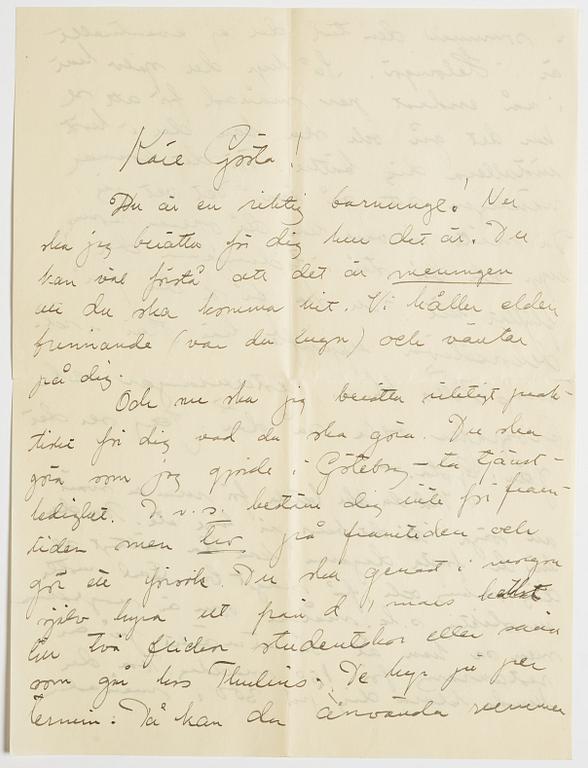 Käre Gösta!
Du är en riktig barnunge! Nu
ska jag berätta för dig hur det är. Du
kan väl förstå att det är meningen
att du ska komma hit. Vi håller elden
brinnande (var du lugn) och väntar
på dig.
Och nu ska jag berätta riktigt prak-
tiskt för dig vad du ska göra. Du ska
göra som jag gjorde i Göteborg – ta tjänst-
ledighet. D.v.s. bestäm dig inte för fram-
tiden men tro på framtiden och
gör ett försök. Du ska genast i morgon
själv hyra ut från d. 1 mars helst
till två flickor studentskor eller såna
som gå hos Thulins. De hyr ju per
termin. Då kan du använda summan